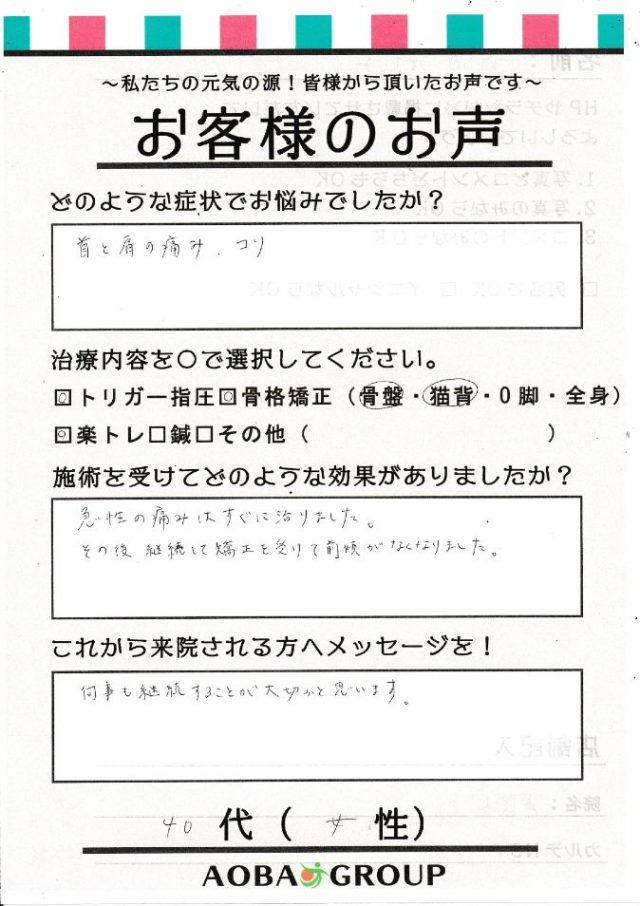 ～私たちの元気の源！皆様から頂いたお声です～
お客様のお声
どのような症状でお悩みでしたか？
首と肩の痛み、コリ
治療内容を〇で選択してください。
☑トリガー指圧☑骨格矯正（骨盤・猫背・O脚・全身）
☑楽トレ□鍼□その他（　　　　　　　　　）
施術を受けてどのような効果がありましたか？
急性の痛みはすぐに治りました。
その後 継続して矯正を受けて前傾がなくなりました。
これから来院される方へメッセージを！
何事も継続することが大切かと思います。
40 代（ 女 性）
AOBA GROUP